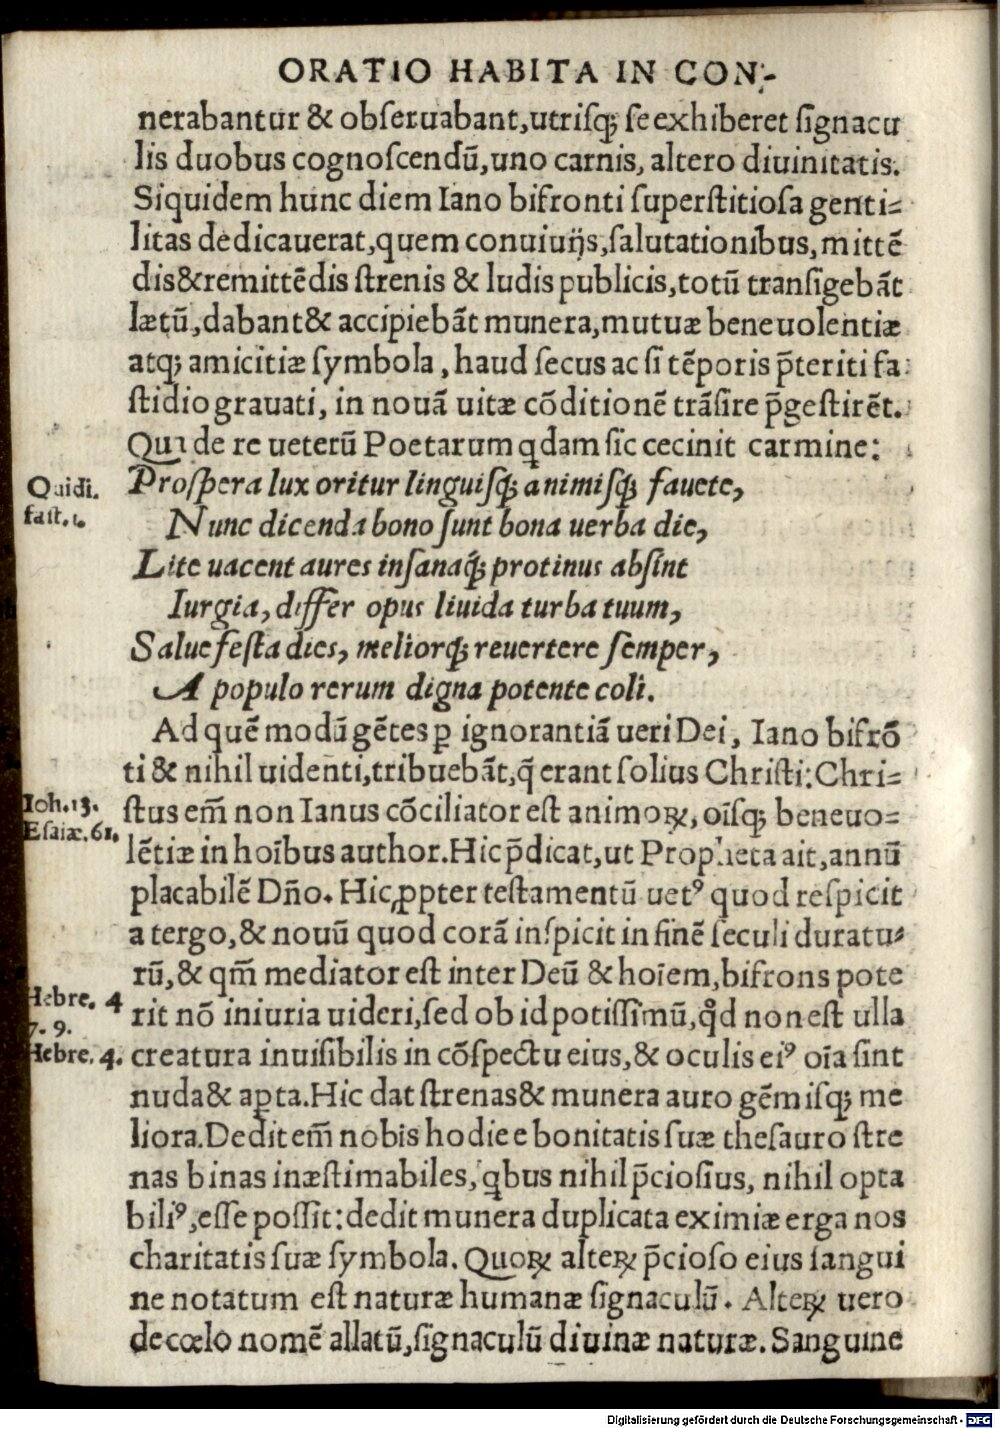 ORATIO HABITA IN CON-
nerabantur & obſeruabant,utriſq; ſe exhiberet ſignacu
lis duobus cognoſcendū,uno carnis, altero diuinitatis.
Siquidem hunc diem Iano bifronti ſuperſtitioſa genti⸗
litas dedicauerat,quem conuiuijs,ſalutationibus,mittē
dis&remittēdis ſtrenis & ludis publicis,totū tranſigebāt
lætū,dabant& accipiebāt munera,mutuæ beneuolentiæ
atq; amicitiæ ſymbola, haud ſecus ac ſi tēporis p̄teriti fa
ſtidio grauati, in nouā uitæ cōditionē trāſire p̄geſtirēt.
Qui de re ueterū Poetarum qdam ſic cecinit carmine:
Ouidi.
faſt.1.
Proſpera lux oritur linguiſq; animiſq; fauete,
Nunc dicenda bono ſunt bona uerba die,
Lite uacent aures inſanaq́; protinus abſint
Iurgia, differ opus liuida turba tuum,
Salue feſta dies, meliorq; reuertere ſemper,
A populo rerum digna potente coli.
Ad quē modū gētes ꝑ ignorantiā ueri Dei, Iano bifrō
ti & nihil uidenti,tribuebāt,q̄ erant ſolius Chriſti:Chri⸗
Ioh.13.
Eſaiæ.61.
ſtus em̄ non Ianus cōciliator eſt animoꝝ, oīſq; beneuo⸗
lētiæ in hoībus author.Hic p̄dicat,ut Propheta ait,annū
placabilē Dño. Hic ꝓpter teſtamentū uetꝰ quod reſpicit
a tergo,& nouū quod corā inſpicit in finē ſeculi duratu⸗
rū,& qm̄ mediator eſt inter Deū & hoīem,bifrons pote
Hebre. 4
7. 9.
Hebre. 4.
rit nō iniuria uideri,ſed ob id potiſſimū,qd̓ non eſt ulla
creatura inuiſibilis in cōſpectu eius,& oculis eiꝰ oīa ſint
nuda& aꝑta.Hic dat ſtrenas& munera auro gēmiſq; me
liora.Dedit em̄ nobis hodie e bonitatis ſuæ theſauro ſtre
nas binas inæſtimabiles, qbus nihil p̄cioſius, nihil opta
biliꝰ,eſſe poſſit:dedit munera duplicata eximiæ erga nos
charitatis ſuæ ſymbola. Quoꝝ alteꝝ p̄cioſo eius ſangui
ne notatum eſt naturæ humanæ ſignaculū. Alteꝝ uero
de cœlo nomē allatū,ſignaculū diuinæ naturæ. Sanguine
Digitalisierung gefördert durch die Deutsche Forschungsgemeinschaft - DFG